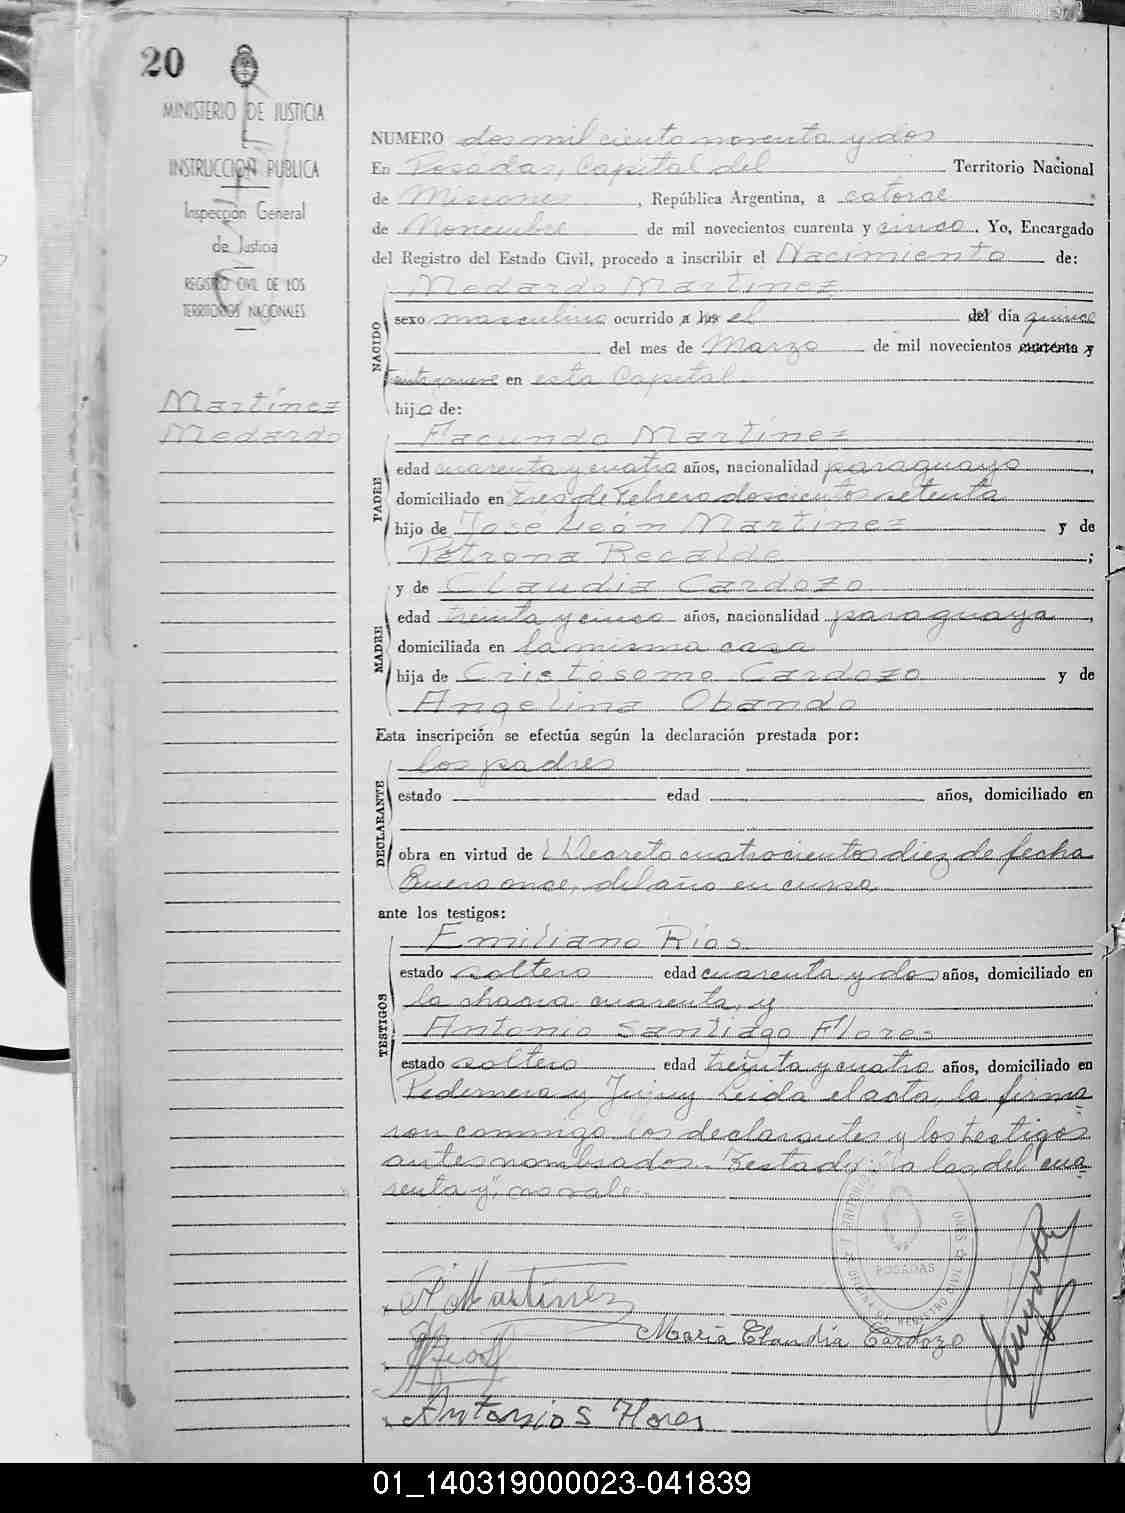 20
MINISTERIO DE JUSTICIA
E
INSTRUCCION PUBLICA
Inspección General
de Justicia
REGISTRO CIVIL DE LOS
TERRITORIOS NACIONALES
Martínez
Medardo
NUMERO dos mil ciento noventa y dos
En Posadas, Capital del Territorio Nacional
de Misiones, República Argentina, a catorce
de Noviembre de mil novecientos cuarenta y cinco. Yo, Encargado
del Registro del Estado Civil, procedo a inscribir el Nacimiento de:
NACIDO
Medardo Martínez
sexo masculino ocurrido a las el del día quince
del mes de Marzo de mil novecientos cuarenta y
en esta Capital.
hijo de:
PADRE
Facundo Martínez
edad cuarenta y cuatro años, nacionalidad paraguayo,
domiciliado en Tres de Febrero doscientos setenta
hijo de José León Martínez y de
Petrona Recalde;
y de Claudia Cardozo
MADRE
edad treinta y cinco años, nacionalidad paraguaya,
domiciliada en la misma casa
hija de Cristósomo Cardozo y de
Angelina Obando
Esta inscripción se efectúa según la declaración prestada por:
DECLARANTE
los padres
estado edad años, domiciliado en
obra en virtud de l Decreto cuatrocientos diez de fecha
Enero once, del año en curso
ante los testigos:
TESTIGOS
Emiliano Ríos
estado soltero edad cuarenta y dos años, domiciliado en
la chacra cuarenta, y
Antonio Santiago Flores
estado soltero edad treinta y cuatro años, domiciliado en
Pedernera y Jujuy Leida el acta, la firma
ron conmigo los declarantes y los testigos
antes nombrados. Testado: "a las, del, cua
renta y", no vale.
POSADAS
F Martínez
Maria Claudia Cardozo
Antonio S Flores
01_140319000023-041839